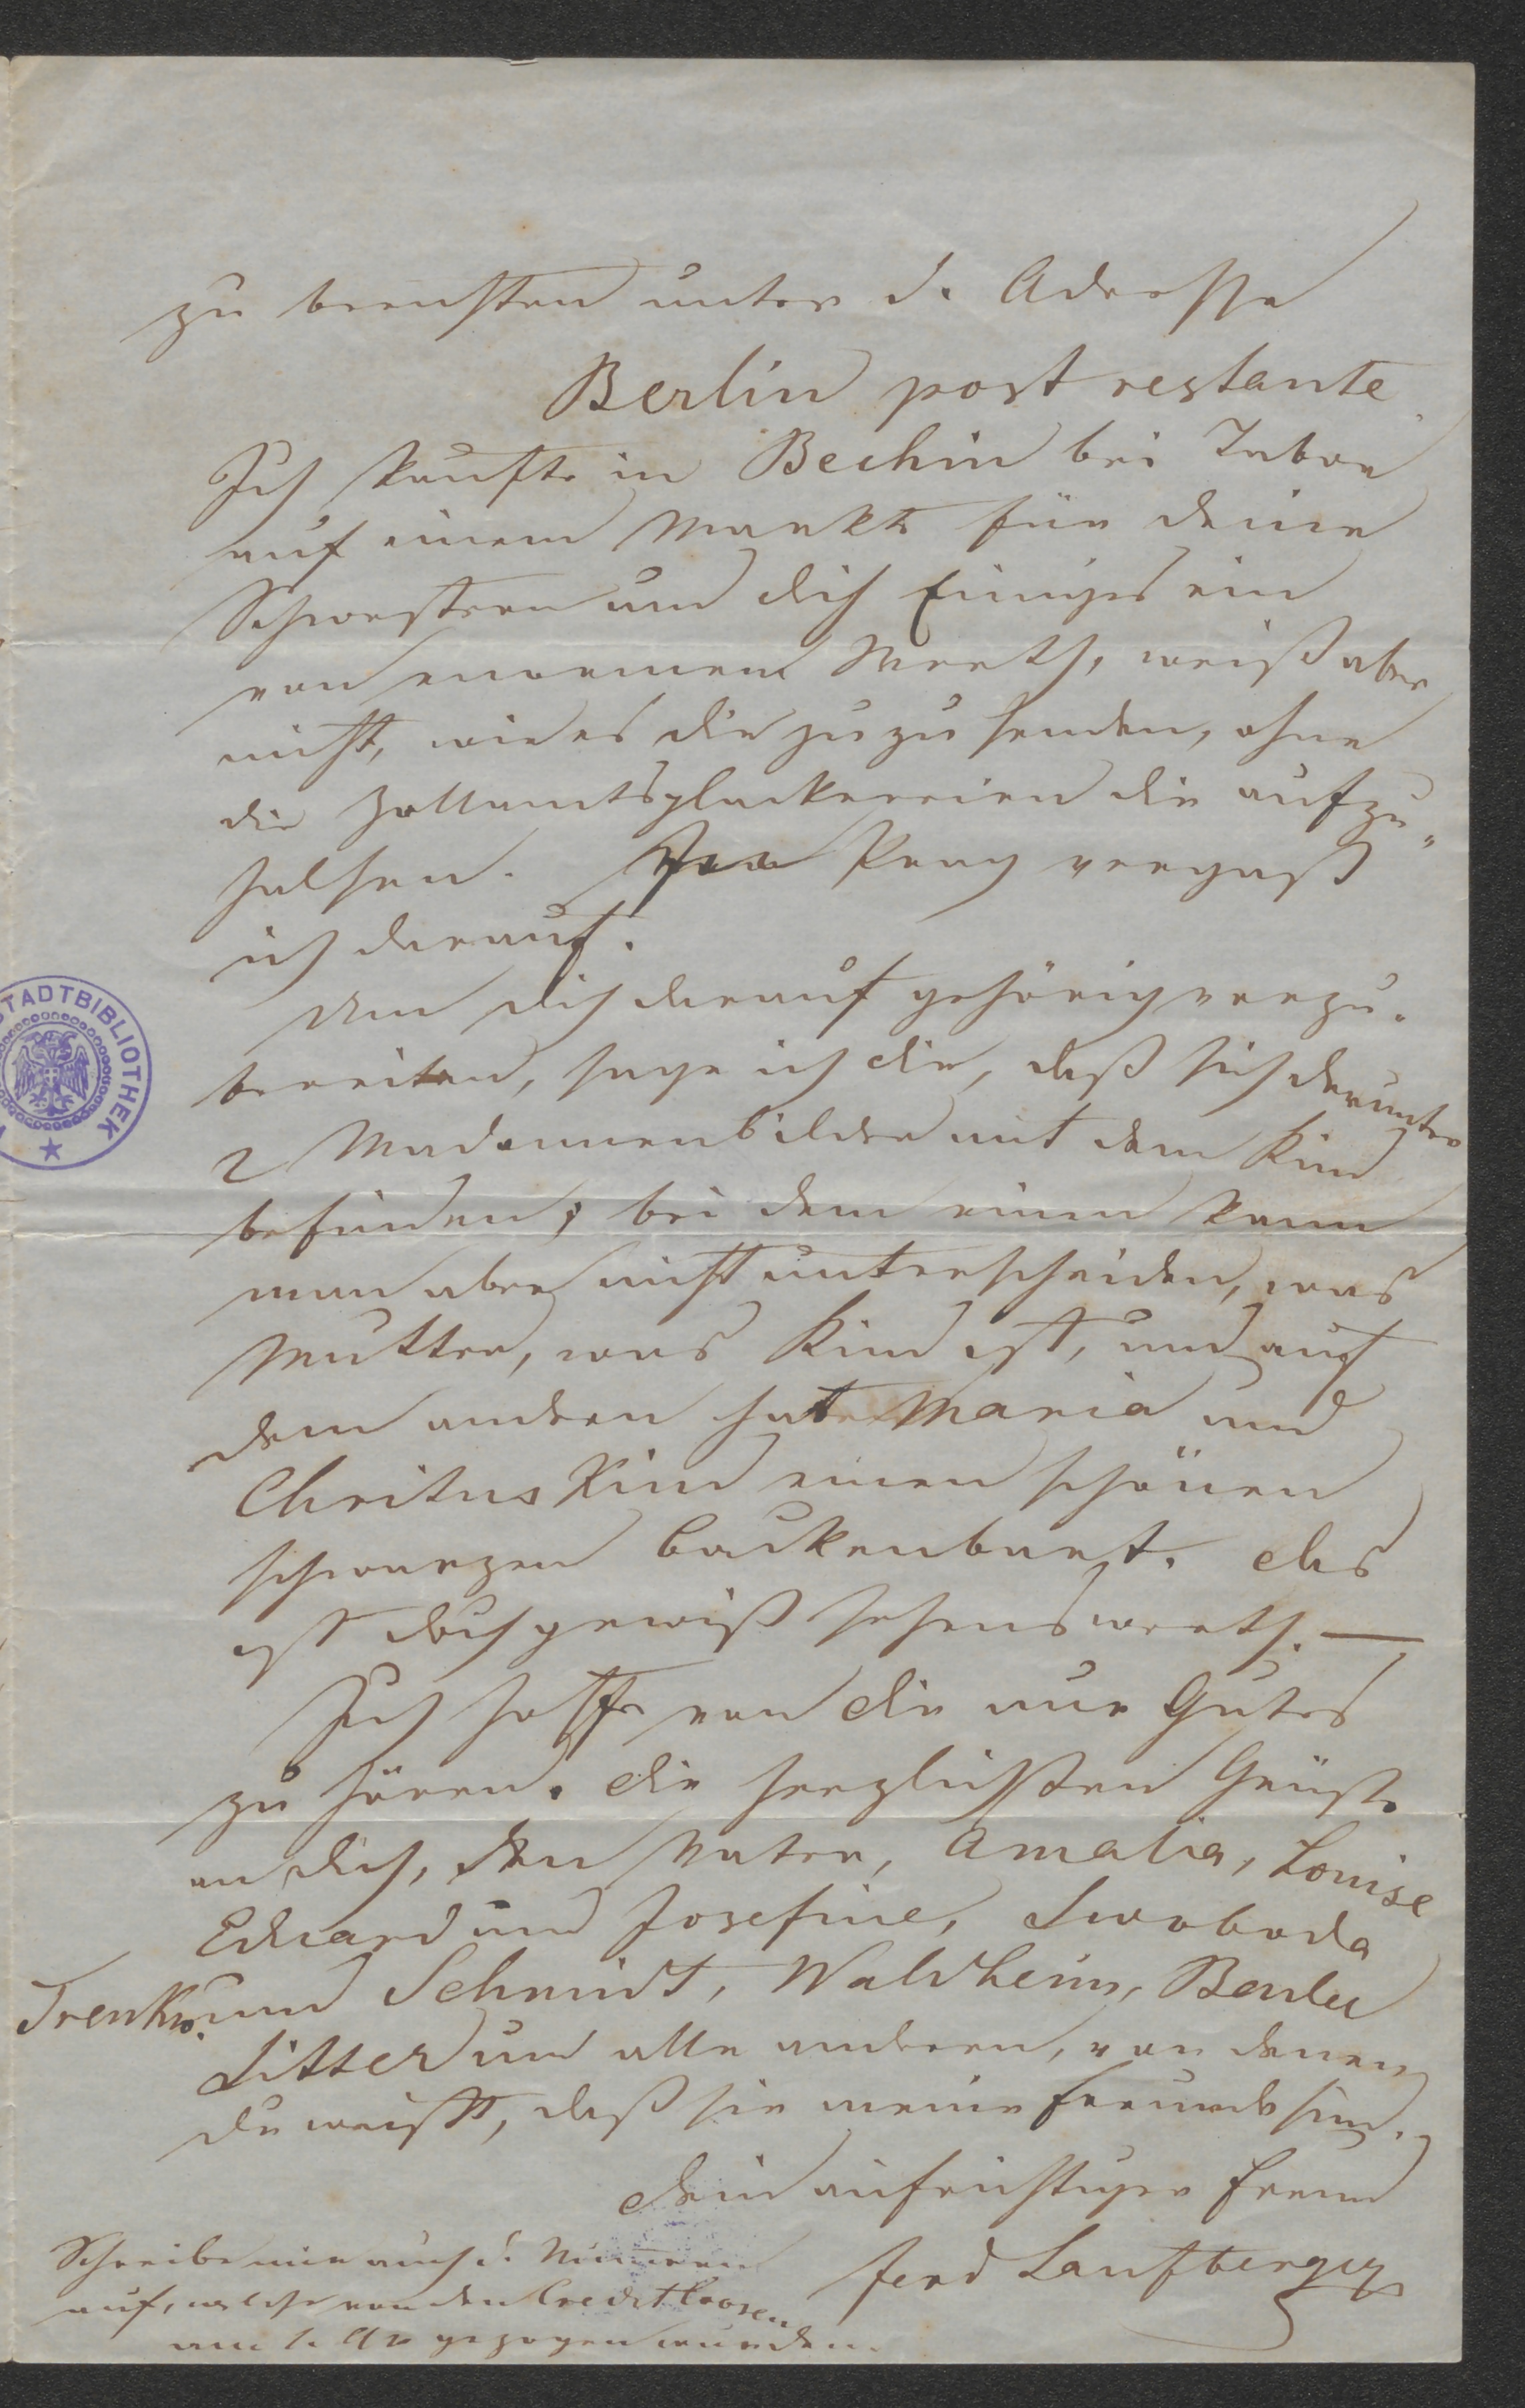 zu brensten unter d. Adresse
Berlin post restante
Ich kaufte in Bechin bei Tabor
auf einem Markte für deine
Schwestern und dich Einiges ein
von enormem Werth, weiß aber
nicht, wie es dir zuzusenden, ohne
die Zollamtsplackereien dir aufzu-
halsen. In Prag vergaß
ich darauf.
Um dich darauf gehörig vorzu-
bereiten, sage ich dir, daß sich darunter
2 Madonnenbilder mit dem Kind
befinden, bei dem einen kann
man aber nicht unterscheiden, was
Mutter, was Kind ist, und auf
dem andern hat Maria und
Christus Kind einen schönen
schwarzen Backenbart. Das
ist doch gewiß sehenswerth. —
Ich hoffe von dir nur Gutes
zu hören. Die herzlichsten Grüße
an dich, den Vater, Amalia, Louise
Eduard und Josefine, Swoboda
Trenkw. und Schmidt, Waldheim,
Sitter und alle anderen, von denen
du weißt, daß sie meine Freunde sind.
Dein aufrichtiger Freund
Ferd Laufberger
Schreibe mir auch d. Numern
auf, welche von den Credit Loosen
am 1. gezogen wurden.
STADTBIBLIOTHEK